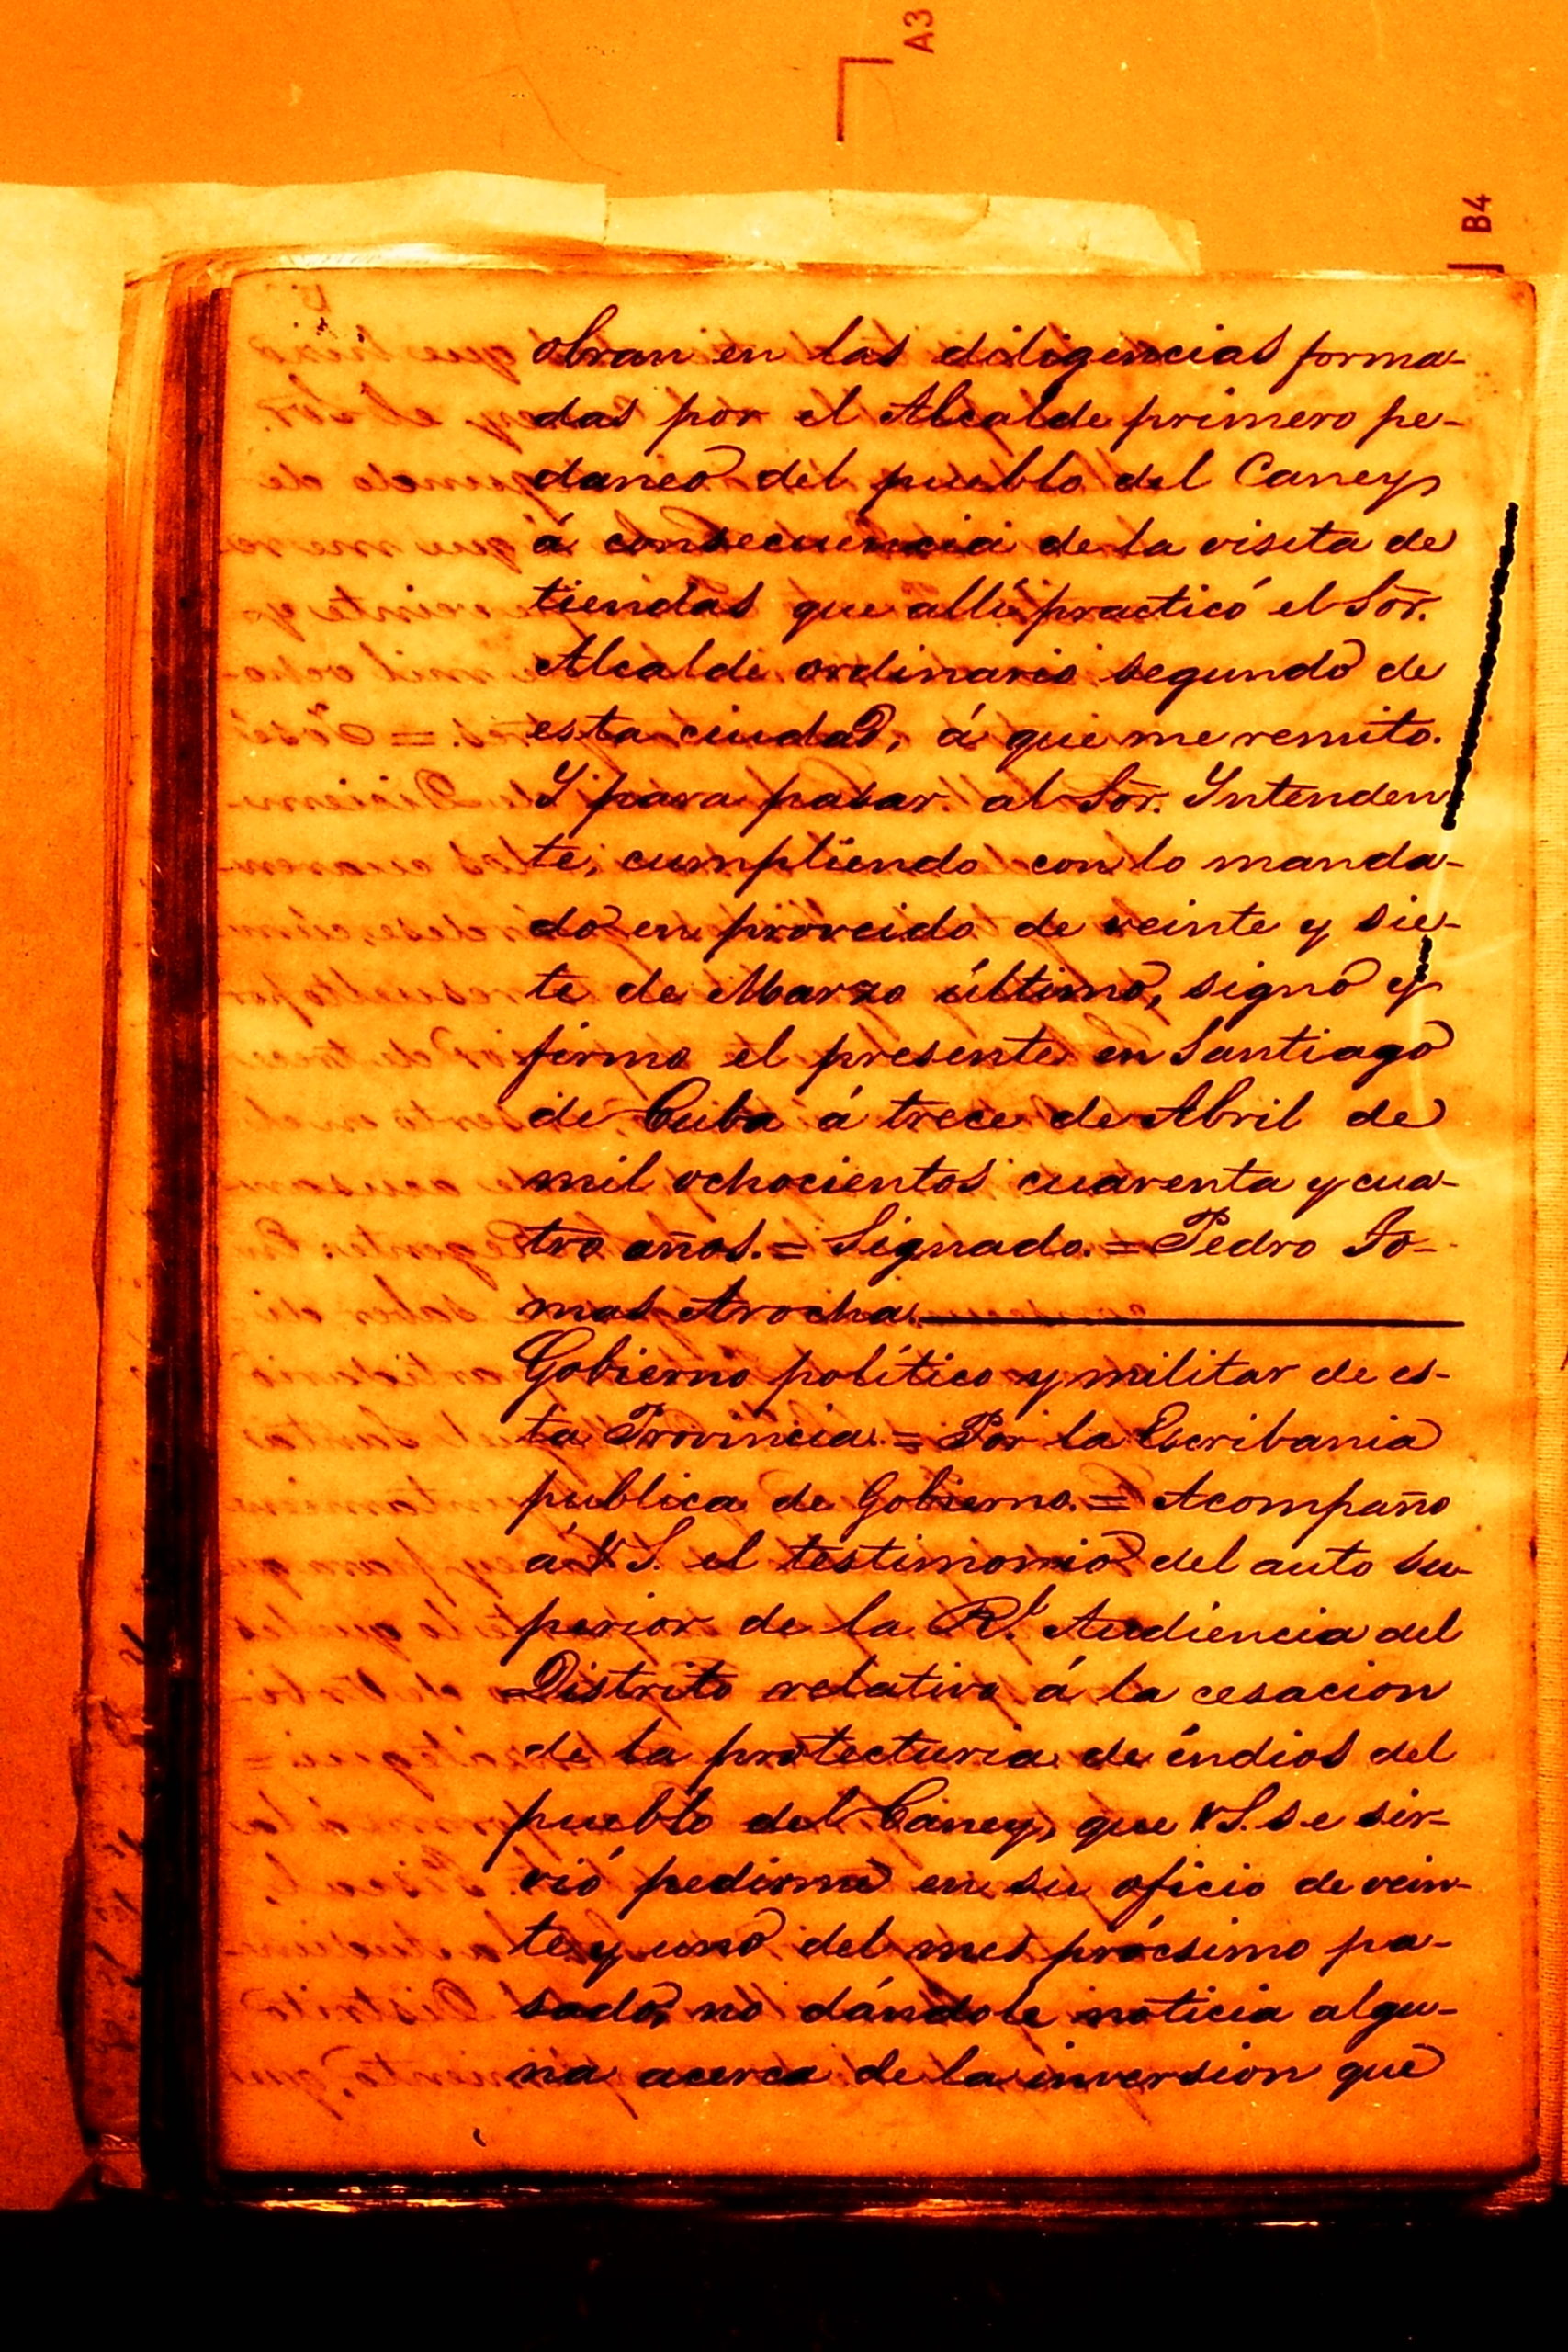 A3
B4
obran en las diligencias forma-
das por el Alcalde primero pe-
daneo del pueblo del Caney
á consecuencia de la visita de
tiendas que alli practicó el Sor.
Alcalde ordinario segundo de
esta ciudad, á que me remito.
Y para pasar al Sor. Yntenden
te, cumpliendo con lo manda-
do en proveido de veinte y sie-
te de Marzo último, signo y
firmo el presente en Santiago
de Cuba á trece de Abril de
mil ochocientos cuarenta y cua-
tro años.= Signado.= Pedro To-
mas Arocha.
Gobierno político y militar de es-
ta Provincia.= Por la Escribania
publica de Gobierno.= Acompaño
á V.S. el testimonio del auto su-
perior de la Rl. Audiencia del
Distrito relativo á la cesacion
de la protecturia de indios del
pueblo del Caney, que V.S. se sir-
vió pedirme en su oficio de vein-
te y uno del mes prócsimo pa-
sado, no dándole noticia algu-
na acerca de la inversion que